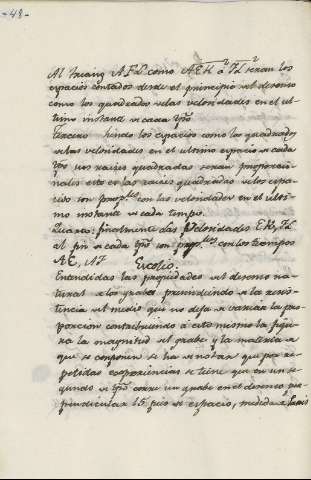 -48-
Al triang AFL como AEK ò FL seran los
espacios contados desde el principio del desenso
como los quadrados de las velosidades en el ul-
timo instante de cada tpo
Tercero siendo los espacios como los quadrados
de las velosidades en el ultimo espacio de cada
tpo sus raizes quadradas seran proporcio-
nales esto es las raizes quadradas de los espa-
cios son proples con las velosidades en el ulti-
mo instante de cada tiempo.
Quarta: finalmente las velosidades EK, FL
al fin de cada tpo son proples con los tiempos
AE, AF
Escolio.
Entendidas las propiedades del desenso na-
tural de los grabes presindiendo de la resis-
tencia del medio que no deja de variar la pro-
porcion contribuiendo à esto mismo la figu-
ra la magnitud del grabe y la materia de
que se componen se ha de notar que por re-
petidas experiencias se tiene que en un se-
gundo de tpo corre un grabe en el desenso per-
pendicular 15 pies de espacio, medida de Paris